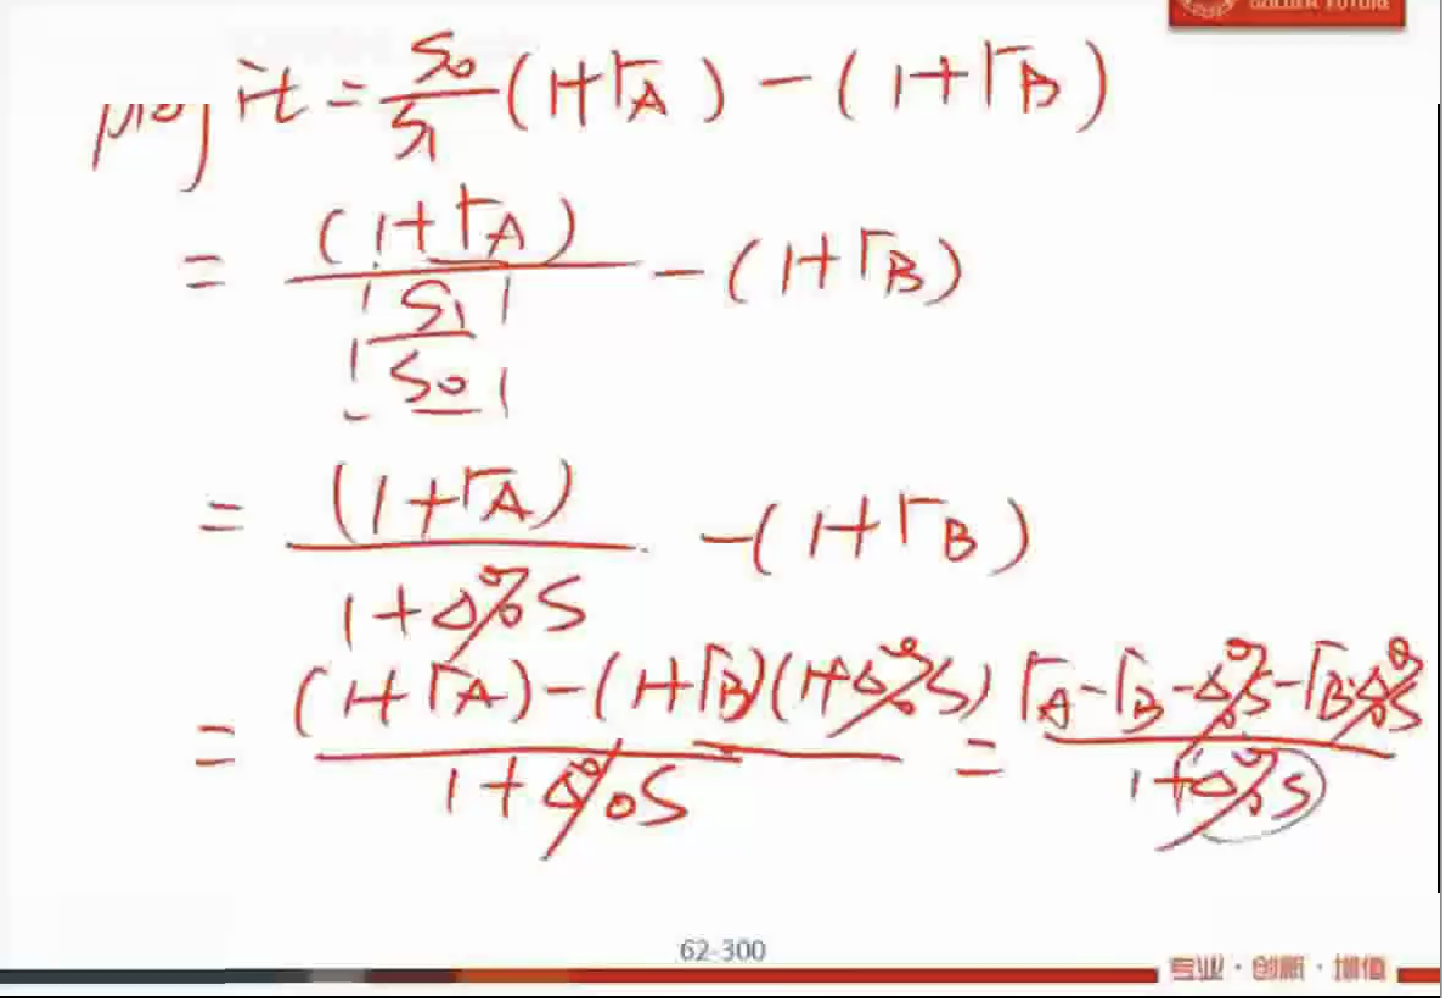 GOLDEN FUTURE
profit = S₀/S₁ (1+rA) - (1+rB)
= (1+rA) / (S₁/S₀) - (1+rB)
= (1+rA) / (1+Δ%S) - (1+rB)
= ((1+rA) - (1+rB)(1+Δ%S)) / (1+Δ%S) = (rA - rB - Δ%S - rB·Δ%S) / (1+Δ%S)
62-300
专业·创新·增值